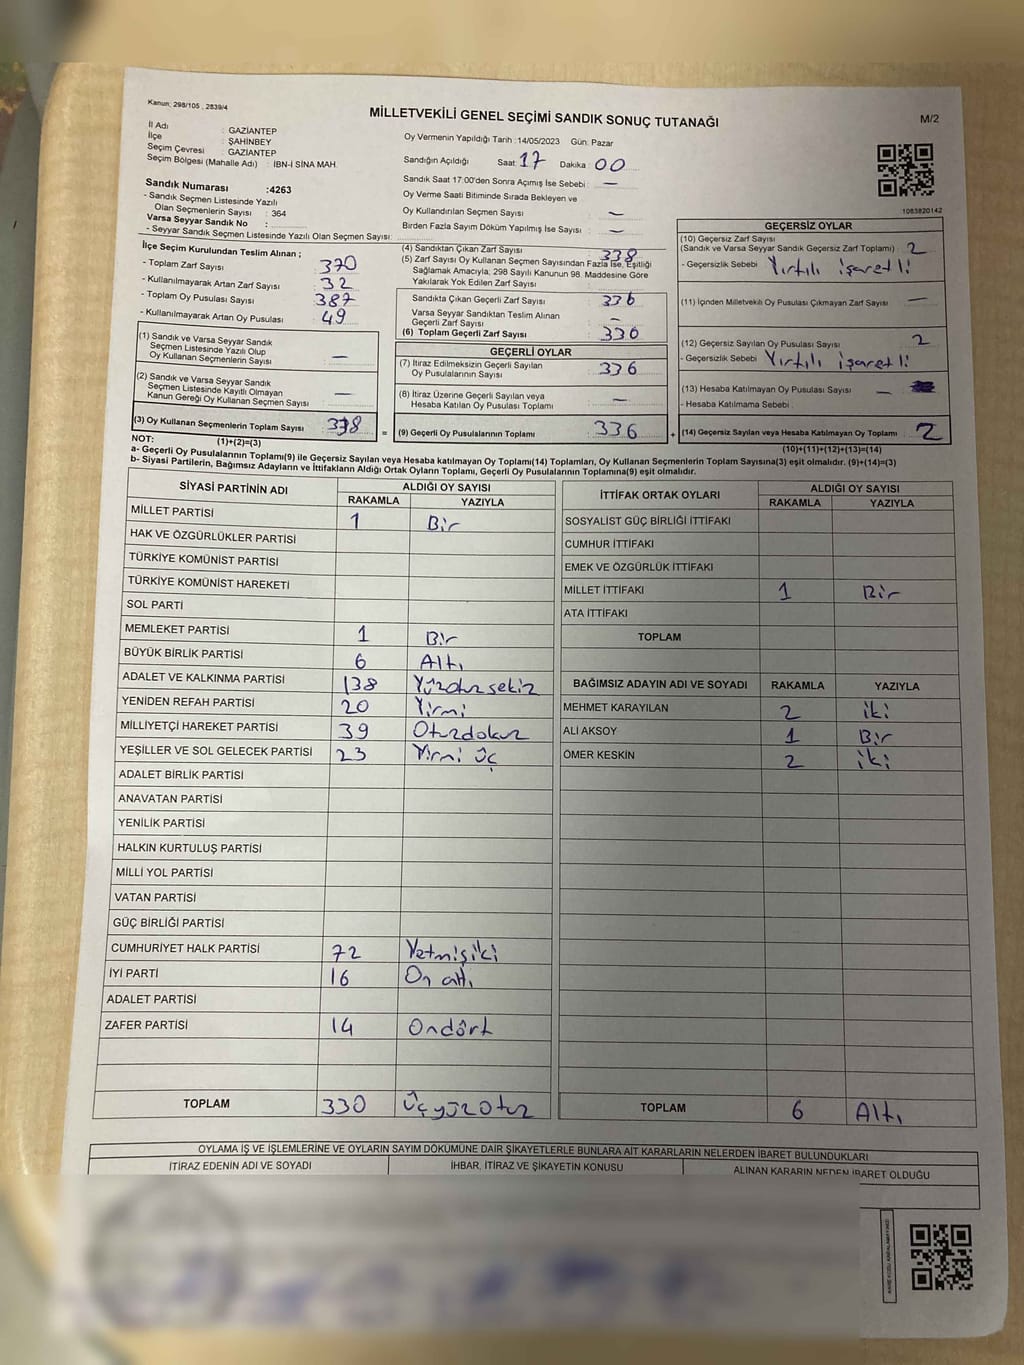 Kanun; 298/105 , 2839/4
MİLLETVEKİLİ GENEL SEÇİMİ SANDIK SONUÇ TUTANAĞI
M/2
İl Adı : GAZİANTEP
İlçe : ŞAHİNBEY
Seçim Çevresi : GAZİANTEP
Seçim Bölgesi (Mahalle Adı) : İBN-İ SİNA MAH.
Oy Vermenin Yapıldığı Tarih :14/05/2023 Gün: Pazar
Sandığın Açıldığı Saat: 17 Dakika 00
Sandık Saat 17:00'den Sonra Açımış İse Sebebi : —
Oy Verme Saati Bitiminde Sırada Bekleyen ve
Oy Kullandırılan Seçmen Sayısı : —
Birden Fazla Sayım Döküm Yapılmış İse Sayısı : —
Sandık Numarası :4263
- Sandık Seçmen Listesinde Yazılı
Olan Seçmenlerin Sayısı : 364
Varsa Seyyar Sandık No :
- Seyyar Sandık Seçmen Listesinde Yazılı Olan Seçmen Sayısı:
1083820142
İlçe Seçim Kurulundan Teslim Alınan ;
- Toplam Zarf Sayısı : 370
- Kullanılmayarak Artan Zarf Sayısı : 32
- Toplam Oy Pusulası Sayısı : 387
- Kullanılmayarak Artan Oy Pusulası : 49
(1) Sandık ve Varsa Seyyar Sandık
Seçmen Listesinde Yazılı Olup
Oy Kullanan Seçmenlerin Sayısı : —
(2) Sandık ve Varsa Seyyar Sandık
Seçmen Listesinde Kayıtlı Olmayan
Kanun Gereği Oy Kullanan Seçmen Sayısı : —
(3) Oy Kullanan Seçmenlerin Toplam Sayısı : 338
(4) Sandıktan Çıkan Zarf Sayısı : 338
(5) Zarf Sayısı Oy Kullanan Seçmen Sayısından Fazla İse, Eşitliği
Sağlamak Amacıyla, 298 Sayılı Kanunun 98. Maddesine Göre
Yakılarak Yok Edilen Zarf Sayısı :
Sandıkta Çıkan Geçerli Zarf Sayısı : 336
Varsa Seyyar Sandıktan Teslim Alınan
Geçerli Zarf Sayısı : —
(6) Toplam Geçerli Zarf Sayısı : 336
GEÇERLİ OYLAR
(7) İtiraz Edilmeksizin Geçerli Sayılan
Oy Pusulalarının Sayısı : 336
(8) İtiraz Üzerine Geçerli Sayılan veya
Hesaba Katılan Oy Pusulası Toplamı : —
= (9) Geçerli Oy Pusulalarının Toplamı : 336
GEÇERSİZ OYLAR
(10) Geçersiz Zarf Sayısı
(Sandık ve Varsa Seyyar Sandık Geçersiz Zarf Toplamı) : 2
- Geçersizlik Sebebi : Yırtılı işaretli
(11) İçinden Milletvekili Oy Pusulası Çıkmayan Zarf Sayısı : —
(12) Geçersiz Sayılan Oy Pusulası Sayısı : 2
- Geçersizlik Sebebi : Yırtılı işaretli
(13) Hesaba Katılmayan Oy Pusulası Sayısı : —
- Hesaba Katılmama Sebebi :
+ (14) Geçersiz Sayılan veya Hesaba Katılmayan Oy Pusulası Toplamı : 2
NOT: (1)+(2)=(3) (10)+(11)+(12)+(13)=(14)
a- Geçerli Oy Pusulalarının Toplamı(9) ile Geçersiz Sayılan veya Hesaba Katılmayan Oy Toplamı(14) Toplamları, Oy Kullanan Seçmenlerin Toplam Sayısına(3) eşit olmalıdır. (9)+(14)=(3)
b- Siyasi Partilerin, Bağımsız Adayların ve İttifakların Aldığı Ortak Oyların Toplamı, Geçerli Oy Pusulalarının Toplamına(9) eşit olmalıdır.
SİYASİ PARTİNİN ADI ALDIĞI OY SAYISI
RAKAMLA YAZIYLA
MİLLET PARTİSİ 1 Bir
HAK VE ÖZGÜRLÜKLER PARTİSİ
TÜRKİYE KOMÜNİST PARTİSİ
TÜRKİYE KOMÜNİST HAREKETİ
SOL PARTİ
MEMLEKET PARTİSİ 1 Bir
BÜYÜK BİRLİK PARTİSİ 6 Altı
ADALET VE KALKINMA PARTİSİ 138 Yüzotuzsekiz
YENİDEN REFAH PARTİSİ 20 Yirmi
MİLLİYETÇİ HAREKET PARTİSİ 39 Otuzdokuz
YEŞİLLER VE SOL GELECEK PARTİSİ 23 Yirmi üç
ADALET BİRLİK PARTİSİ
ANAVATAN PARTİSİ
YENİLİK PARTİSİ
HALKIN KURTULUŞ PARTİSİ
MİLLİ YOL PARTİSİ
VATAN PARTİSİ
GÜÇ BİRLİĞİ PARTİSİ
CUMHURİYET HALK PARTİSİ 72 Yetmişiki
İYİ PARTİ 16 On altı
ADALET PARTİSİ
ZAFER PARTİSİ 14 Ondört
TOPLAM 330 Üçyüzotuz
İTTİFAK ORTAK OYLARI ALDIĞI OY SAYISI
RAKAMLA YAZIYLA
SOSYALİST GÜÇ BİRLİĞİ İTTİFAKI
CUMHUR İTTİFAKI
EMEK VE ÖZGÜRLÜK İTTİFAKI
MİLLET İTTİFAKI 1 Bir
ATA İTTİFAKI
TOPLAM
BAĞIMSIZ ADAYIN ADI VE SOYADI RAKAMLA YAZIYLA
MEHMET KARAYILAN 2 iki
ALİ AKSOY 1 Bir
ÖMER KESKİN 2 iki
TOPLAM 6 Altı
OYLAMA İŞ VE İŞLEMLERİNE VE OYLARIN SAYIM DÖKÜMÜNE DAİR ŞİKAYETLERLE BUNLARA AİT KARARLARIN NELERDEN İBARET BULUNDUKLARI
İTİRAZ EDENİN ADI VE SOYADI İHBAR, İTİRAZ VE ŞİKAYETİN KONUSU ALINAN KARARIN NEDEN İBARET OLDUĞU